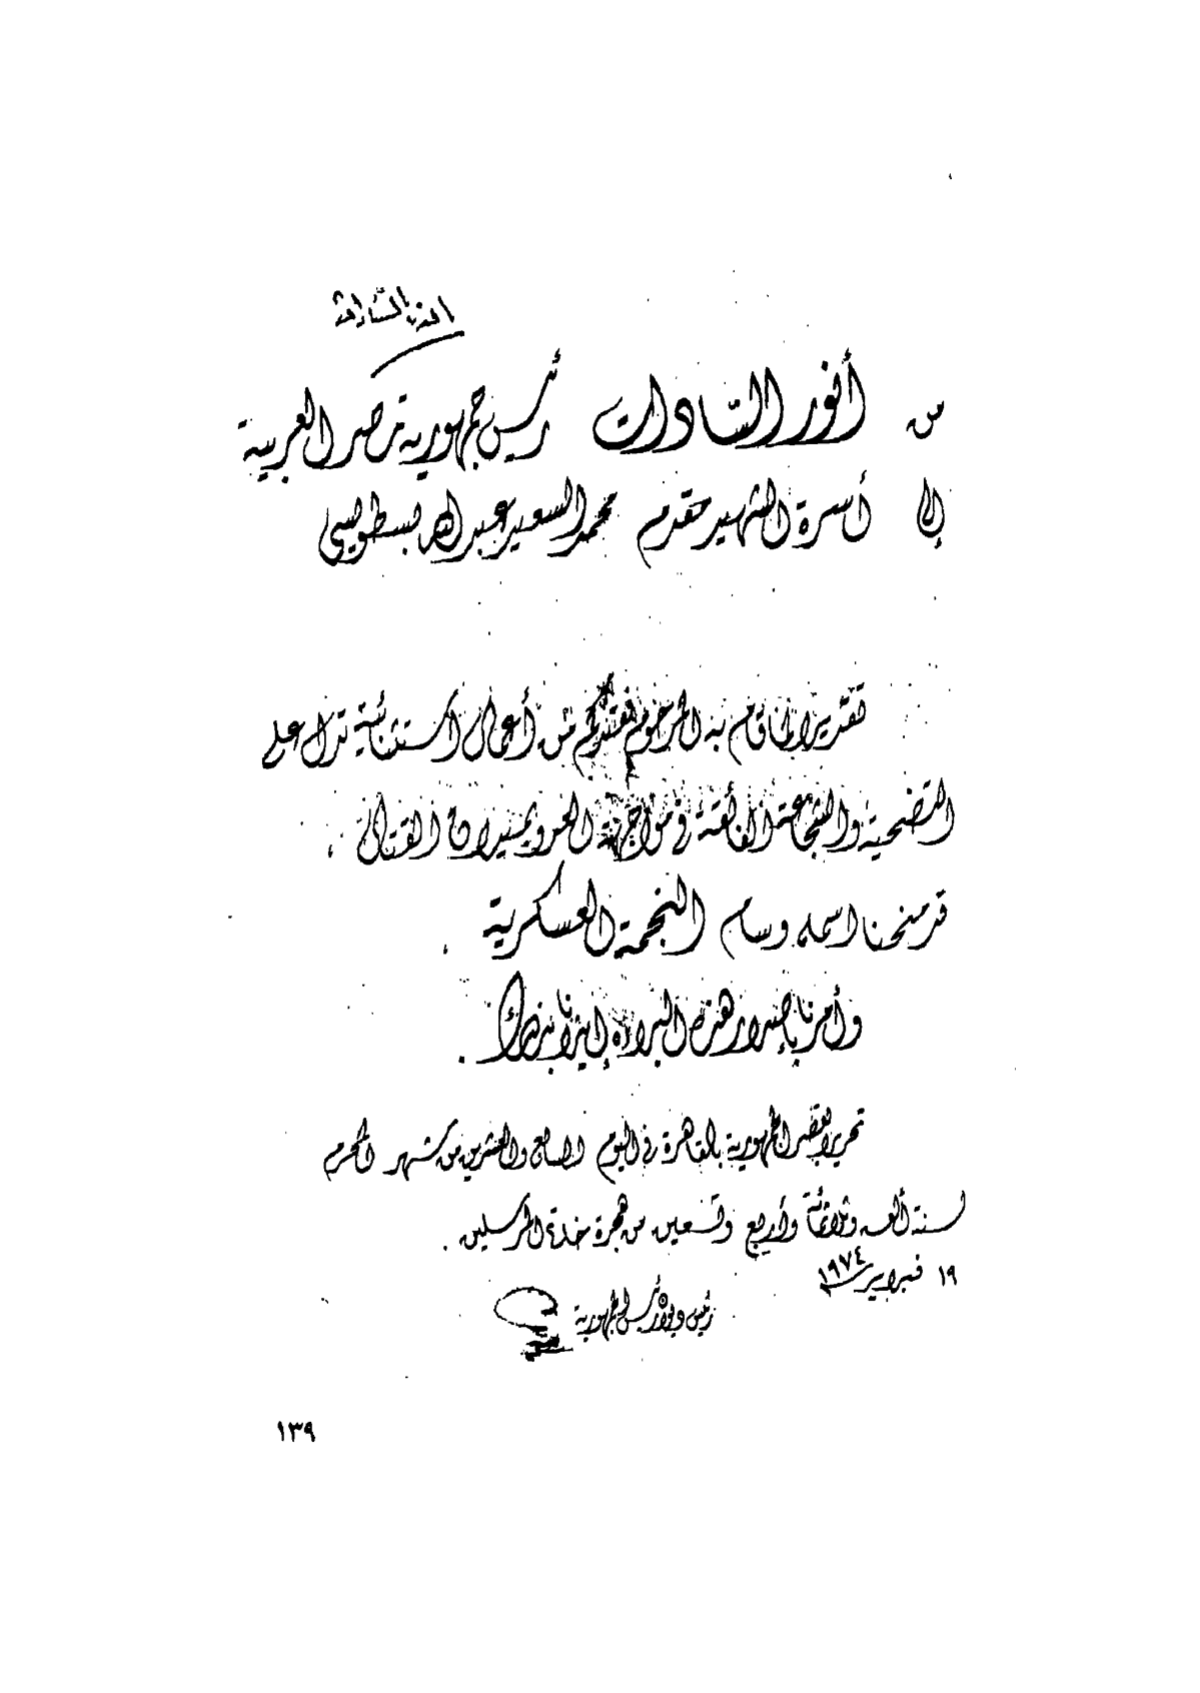 أنور السادات
من أنور السّادات رئيس جمهورية مصر العربية
إلى أسرة الشهيد مقدم محمد السعيد عبد الله بسطويسى
تقديرا لما قام به المرحوم فقيدكم من أعمال استثنائية تدل على
التضحية والشجاعة الفائقة فى مواجهة العدو بميدان القتال ،
قد منحنا اسمه وسام النجمة العسكرية .
وأمرنا بإصدار هذه البراءة إيذانا بذلك .
تحريرا بقصر الجمهورية بالقاهرة فى اليوم السابع والعشرين من شهر المحرم
لسنة ألف وثلاثمائة وأربع وتسعين من هجرة خاتم المرسلين .
١٩ فبراير ١٩٧٤
رئيس ديوان رئيس الجمهورية
١٣٩